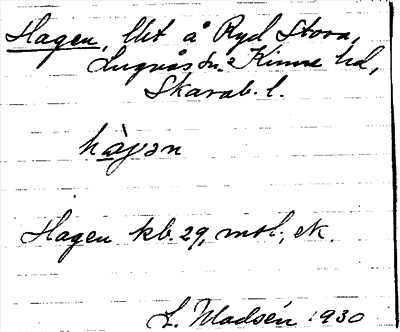 Hagen, lht å Ryd Stora,
Lugnås sn. Kinne hd,
Skarab. l.
hàgən
Hagen kb. 29, mtl., ek.
L. Madsén 1930